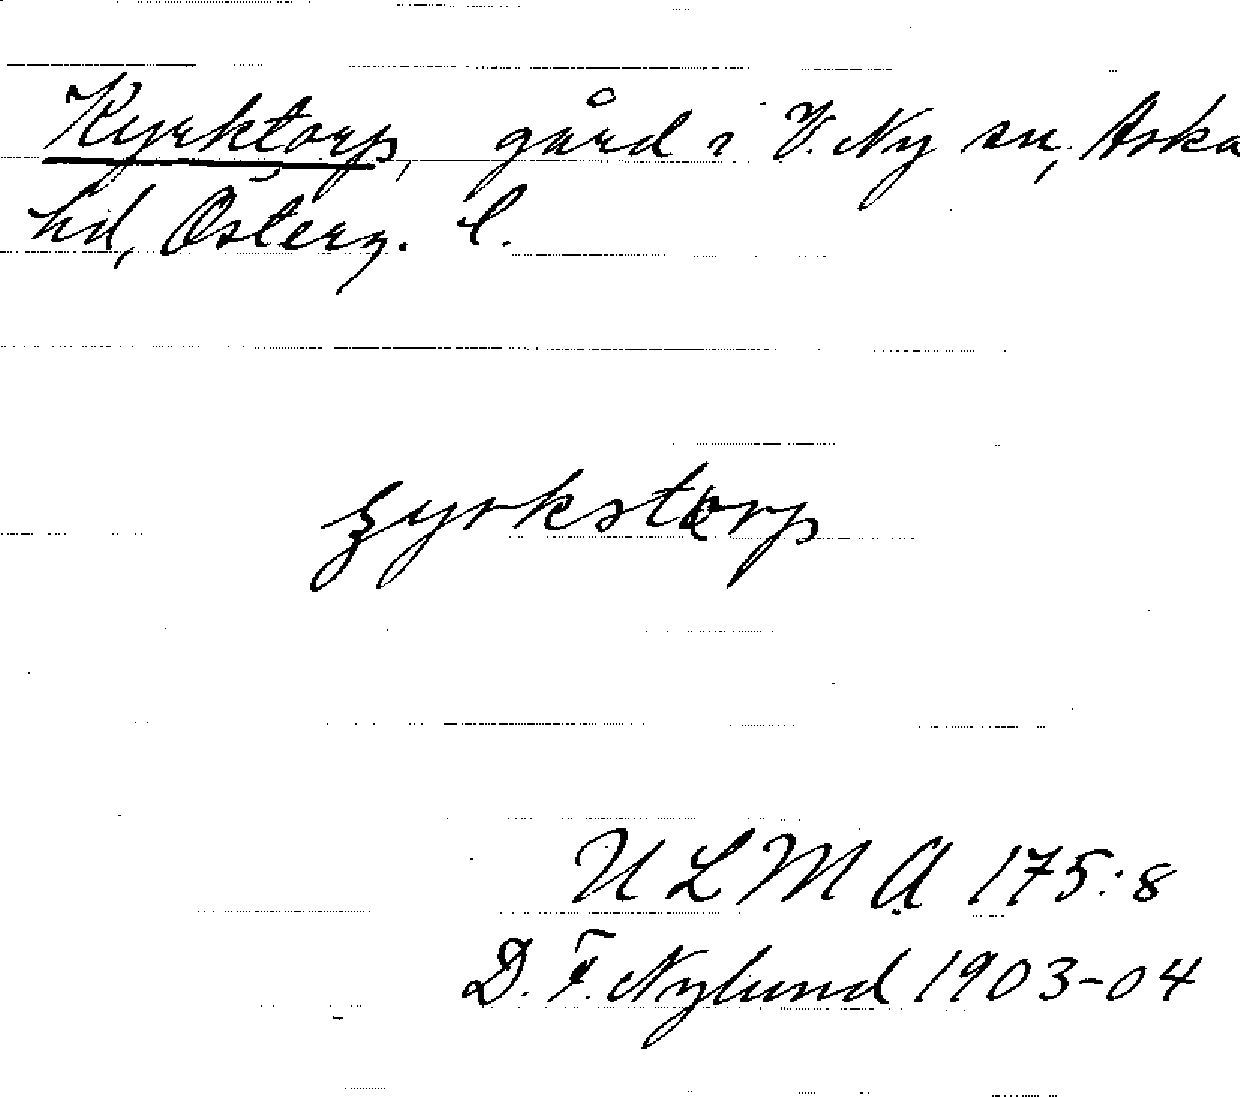 Kyrktorp, gård i V. Ny sn, Aska
hd, Österg. l.
ULMA 175:8
D. F. Nylund 1903-04